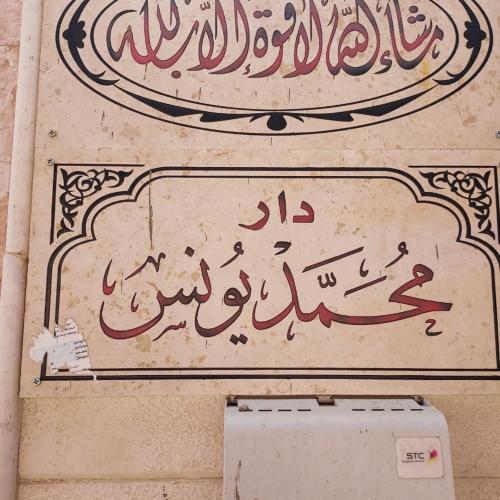 مشاء الله لا قوة إلا بالله
دار
محمد يونس
STC